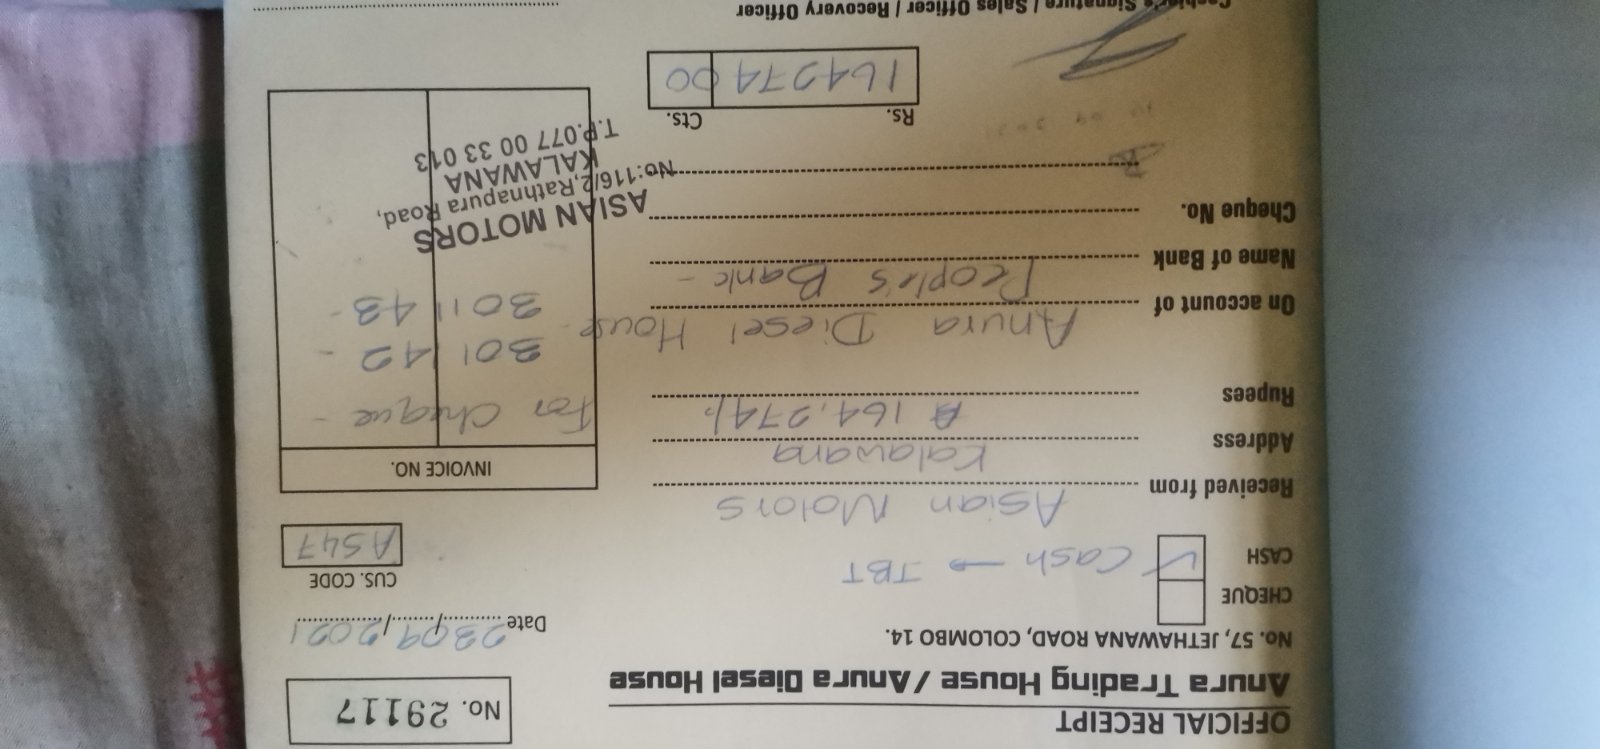 OFFICIAL RECEIPT
No. 29117
Anura Trading House / Anura Diesel House
No. 57, JETHAWANA ROAD, COLOMBO 14.
Date 23/09/2021
CHEQUE
CASH ✓ Cash → TBT
CUS. CODE
AS47
Received from Asian Motors
Address Kalawana
Rupees 164,274/-
On account of Anura Diesel House
Name of Bank People's Bank -
Cheque No.
INVOICE NO.
For Cheque -
301142 -
301143 -
ASIAN MOTORS
No:116/2,Rathnapura Road,
KALAWANA
T.P.077 00 33 013
Rs. Cts.
164274 00
Cashier's Signature / Sales Officer / Recovery Officer